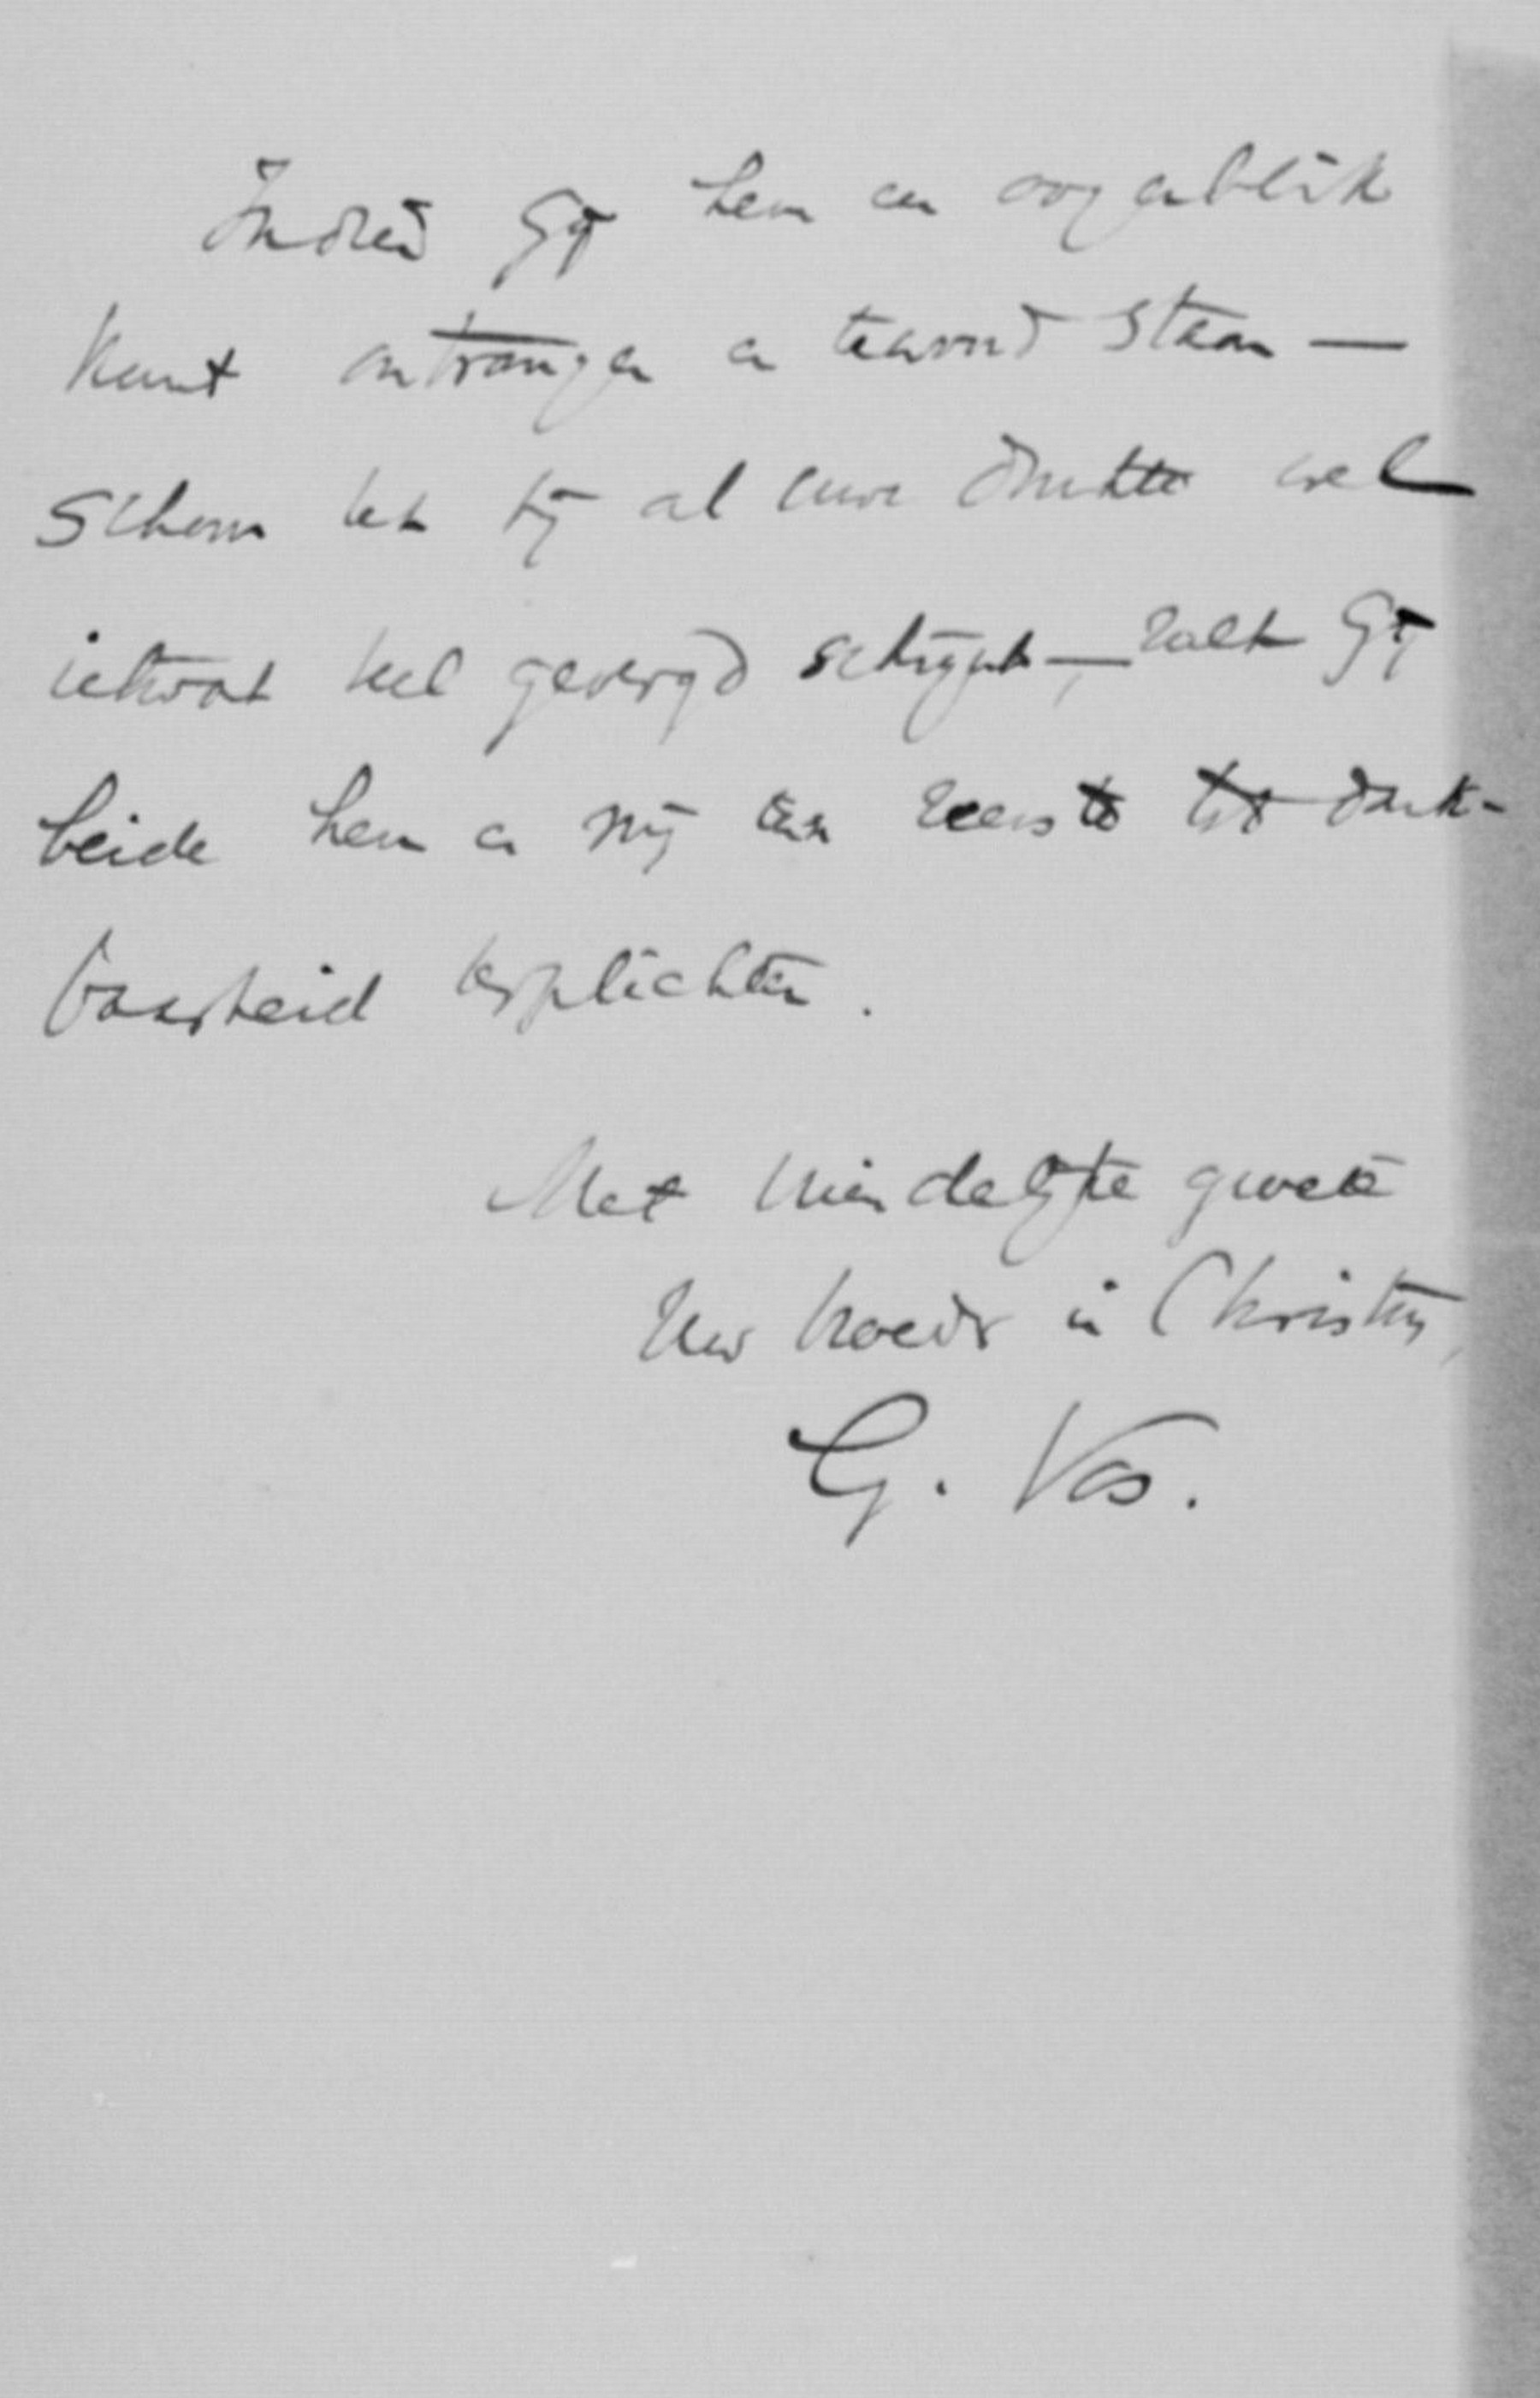 Indien Gij hem een oogenblik
kunt ontvangen en te woord staan —
schoon het bij al uwe drukte wel
ietwat veel gevergd schijnt —, zult Gij
beide hem en mij ten zeerste tot dank-
baarheid verplichten.
Met vriendelijke groete
Uw broeder in Christus,
G. Vos.